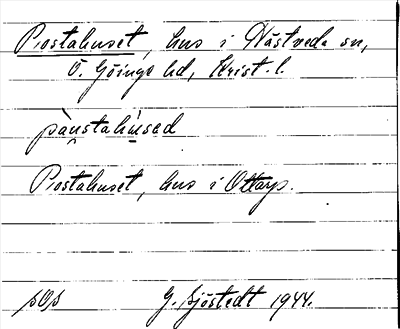 Postahuset, hus i Nästveda sn,
Ö. Göinge hd, Krist. l.
pàu̯stahúsed
Postahuset, hus i Ottarp.
sOs G. Sjöstedt 1944.